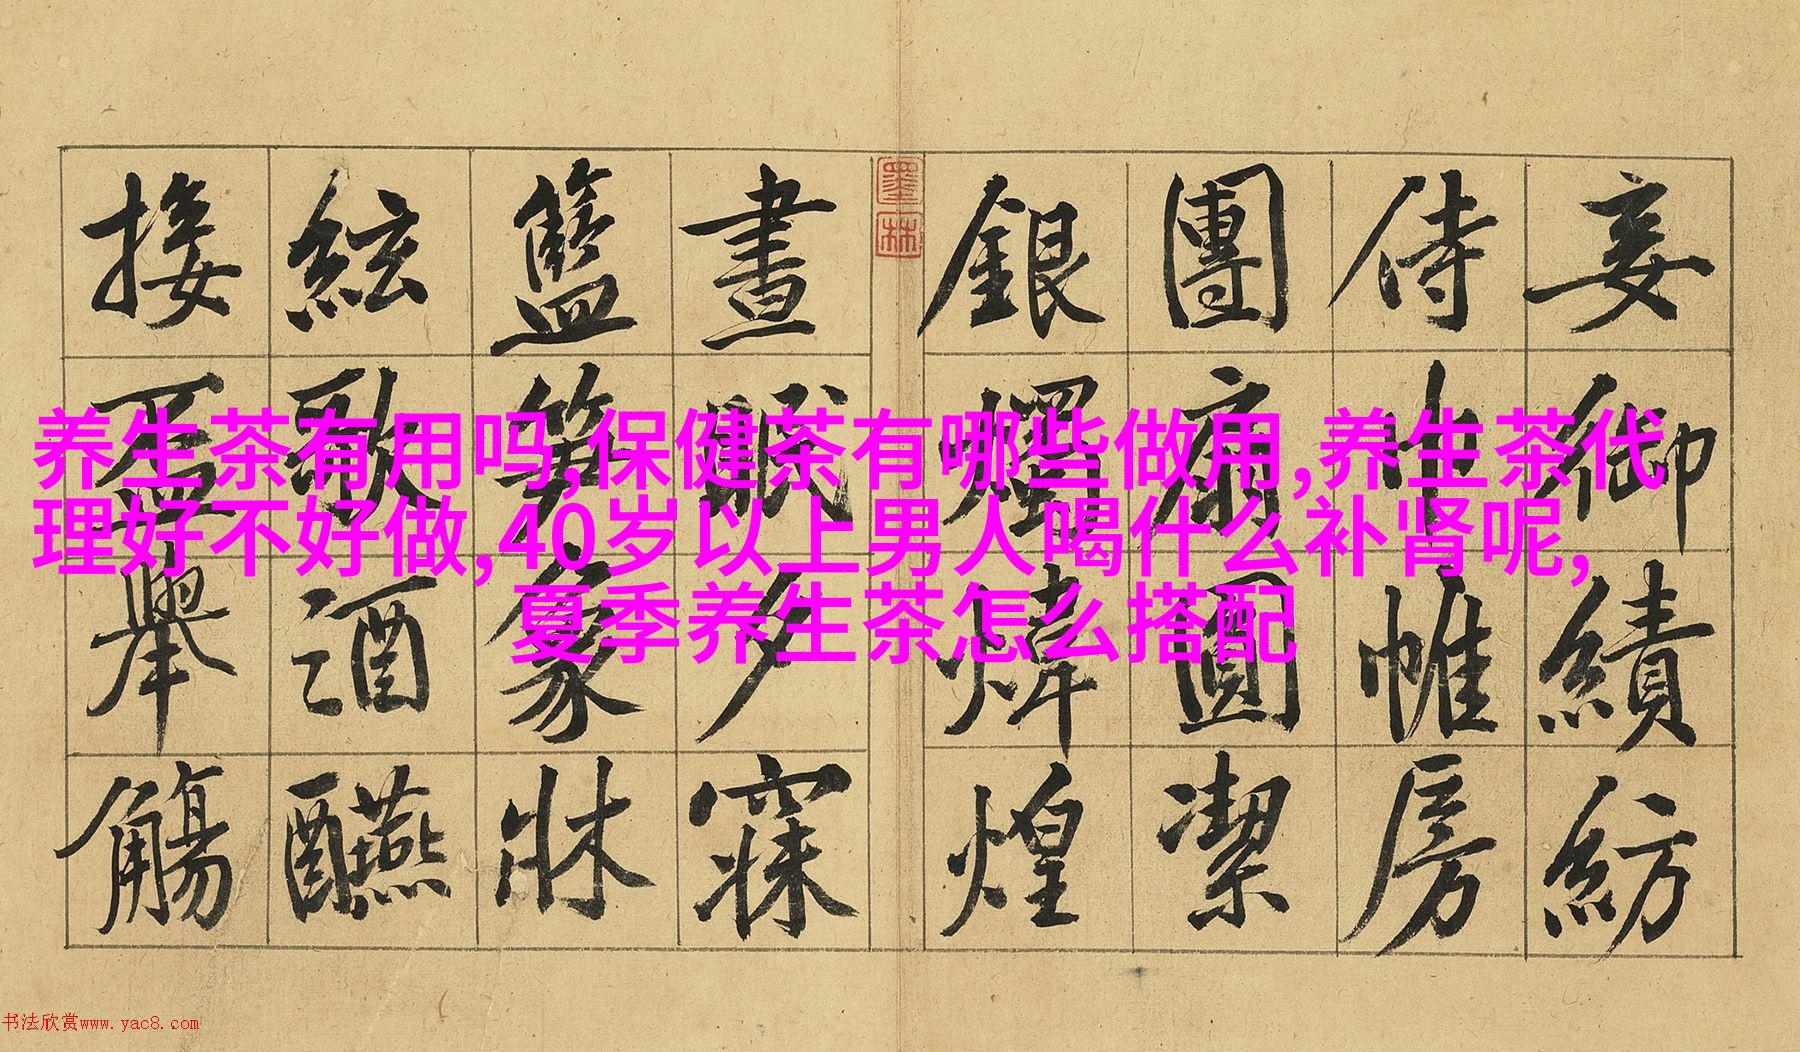 妾御績紡
侍巾帷房
團扇圓潔
銀燭煒煌
墨林
晝眠夕寐
籃笋象牀
絃歌酒醼
接盃舉觴
养生茶有用吗,保健茶有哪些做用,养生茶代
理好不好做,40岁以上男人喝什么补肾呢,
夏季养生茶怎么搭配
书法欣赏www.yac8.com